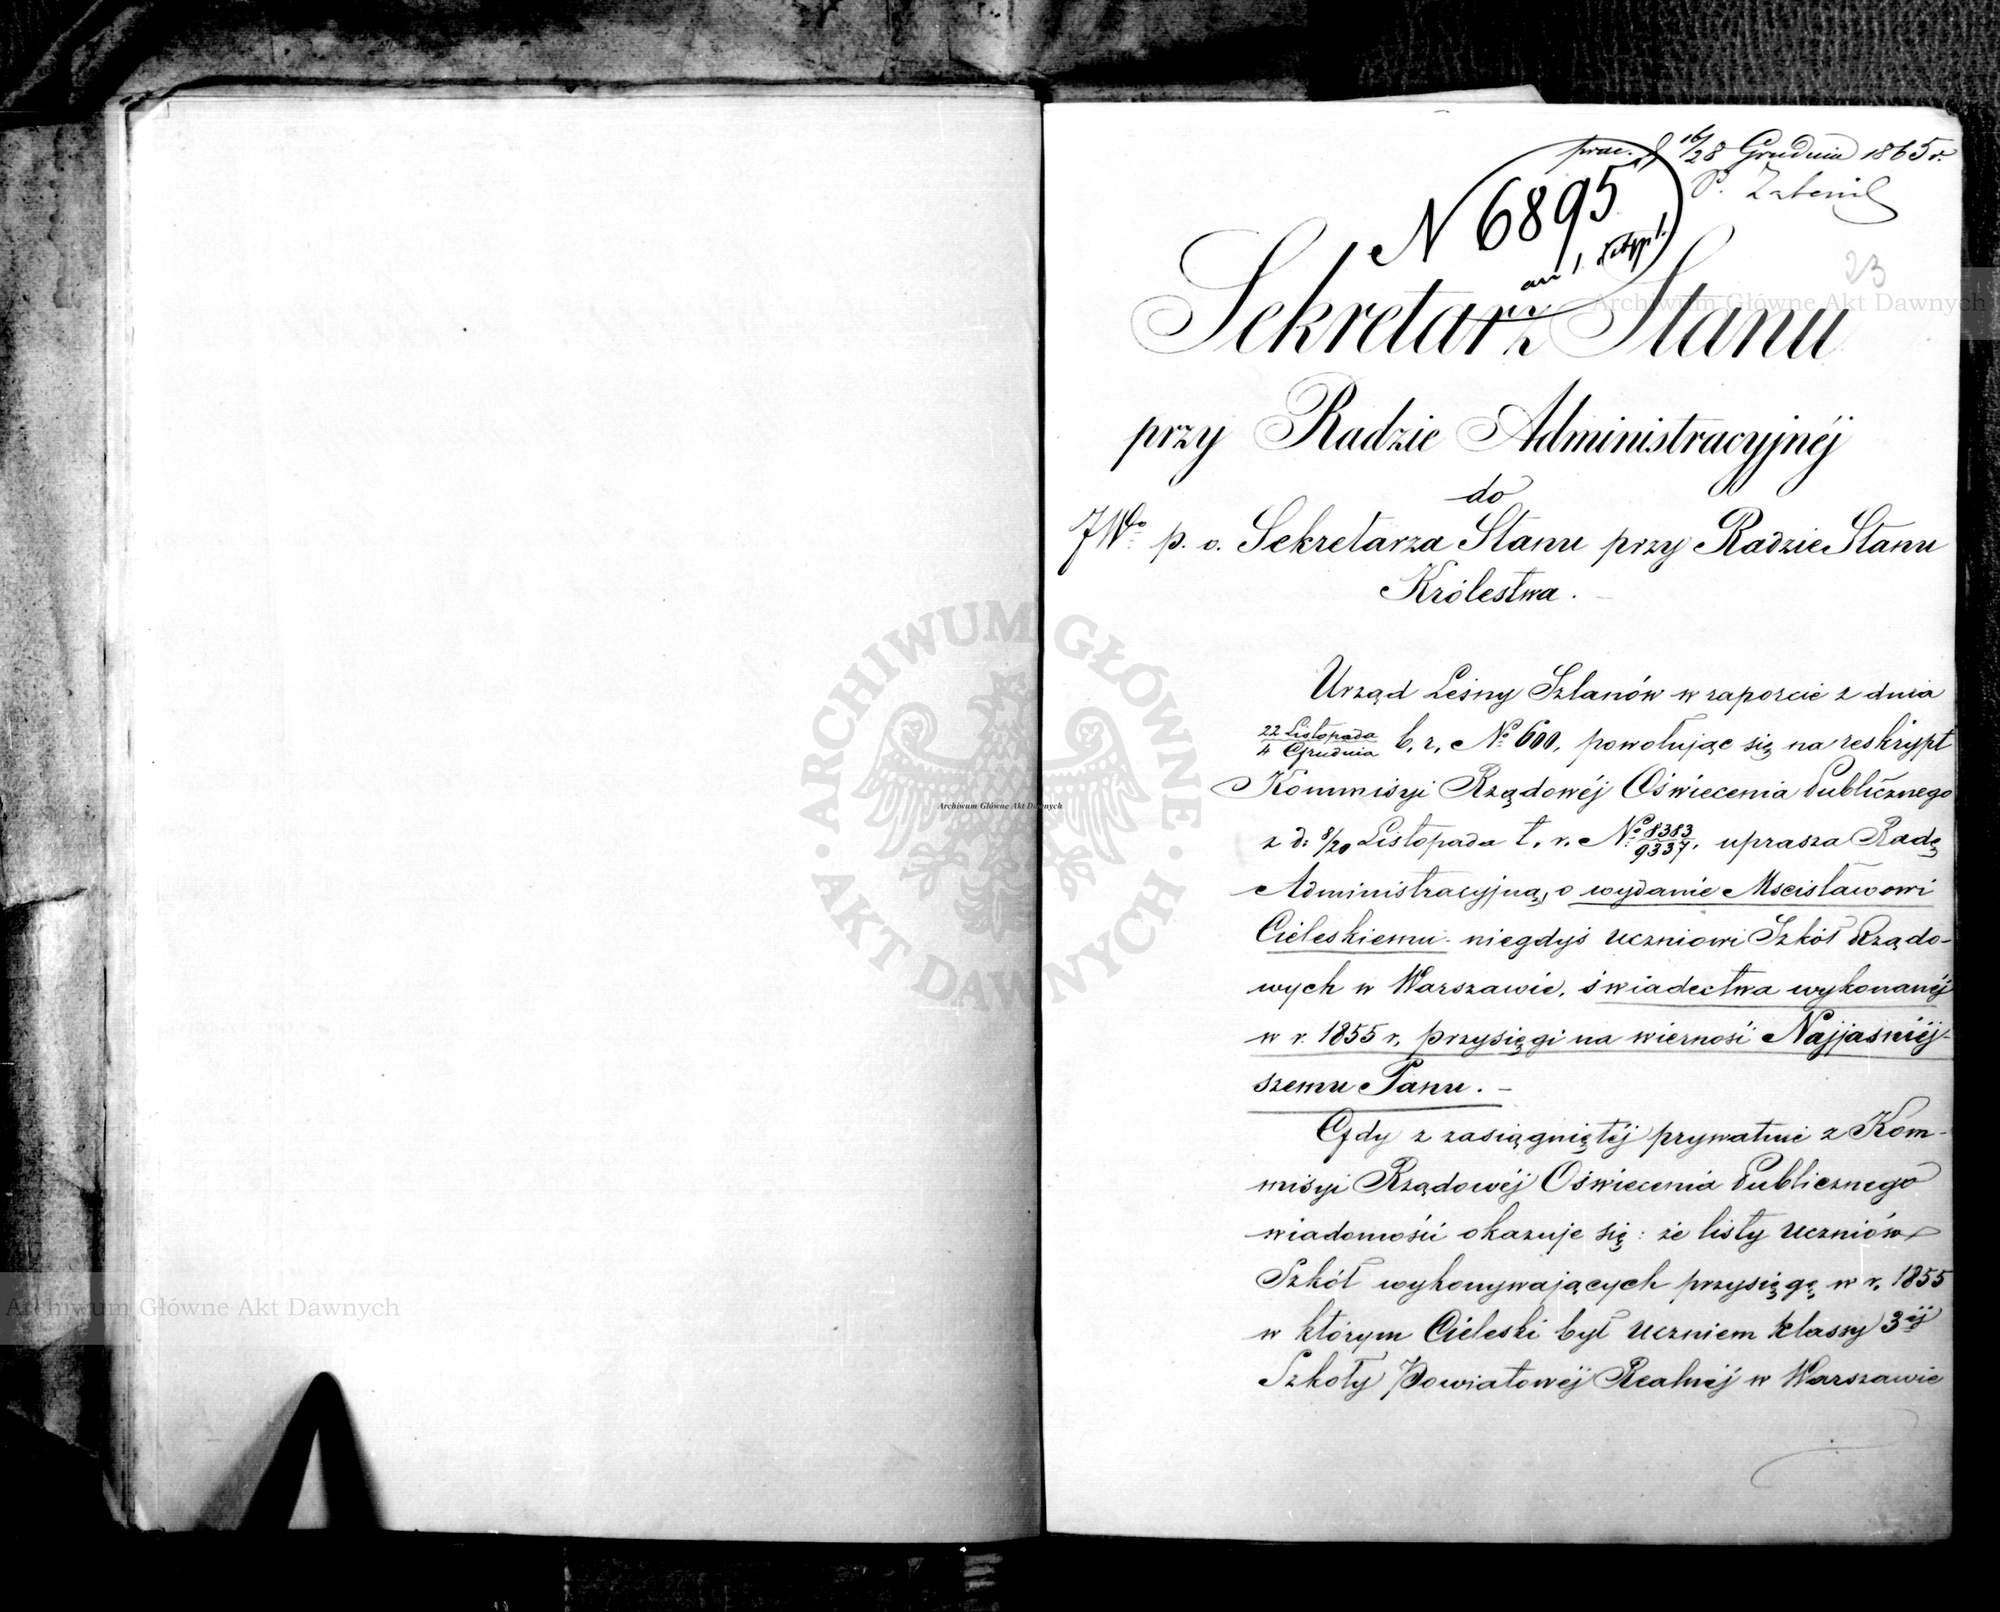 16/28 Grudnia 1865 r.
N 6895
23
Sekretarz Stanu
przy Radzie Administracyjnéj
do
JWo p. o. Sekretarza Stanu przy Radzie Stanu
Królestwa.
Urząd Leśny Szlanów w raporcie z dnia
22 Listopada / 4 Grudnia b. r. No 600, powołując się na reskrypt
Kommisyi Rządowéj Oświecenia Publicznego
z d: 8/20 Listopada t. r. No 8383/9337, uprasza Radę
Administracyjną, o wydanie Mscisławowi
Cieleskiemu niegdyś Uczniowi Szkół Rządo-
wych w Warszawie, świadectwa wykonanéj
w r. 1855 r. przysięgi na wierność Najjaśniéj-
szemu Panu. -
Gdy z zasiągniętéj prywatnie z Kom-
misyi Rządowéj Oświecenia Publicznego
wiadomości okazuje się: że listy Uczniów
Szkół wykonywających przysięgę w r. 1855
w którym Cieleski był Uczniem klassy 3éj
Szkoły Powiatowéj Realnéj w Warszawie
Archiwum Główne Akt Dawnych
ARCHIWUM GŁÓWNE AKT DAWNYCH
Archiwum Główne Akt Dawnych
Archiwum Główne Akt Dawnych